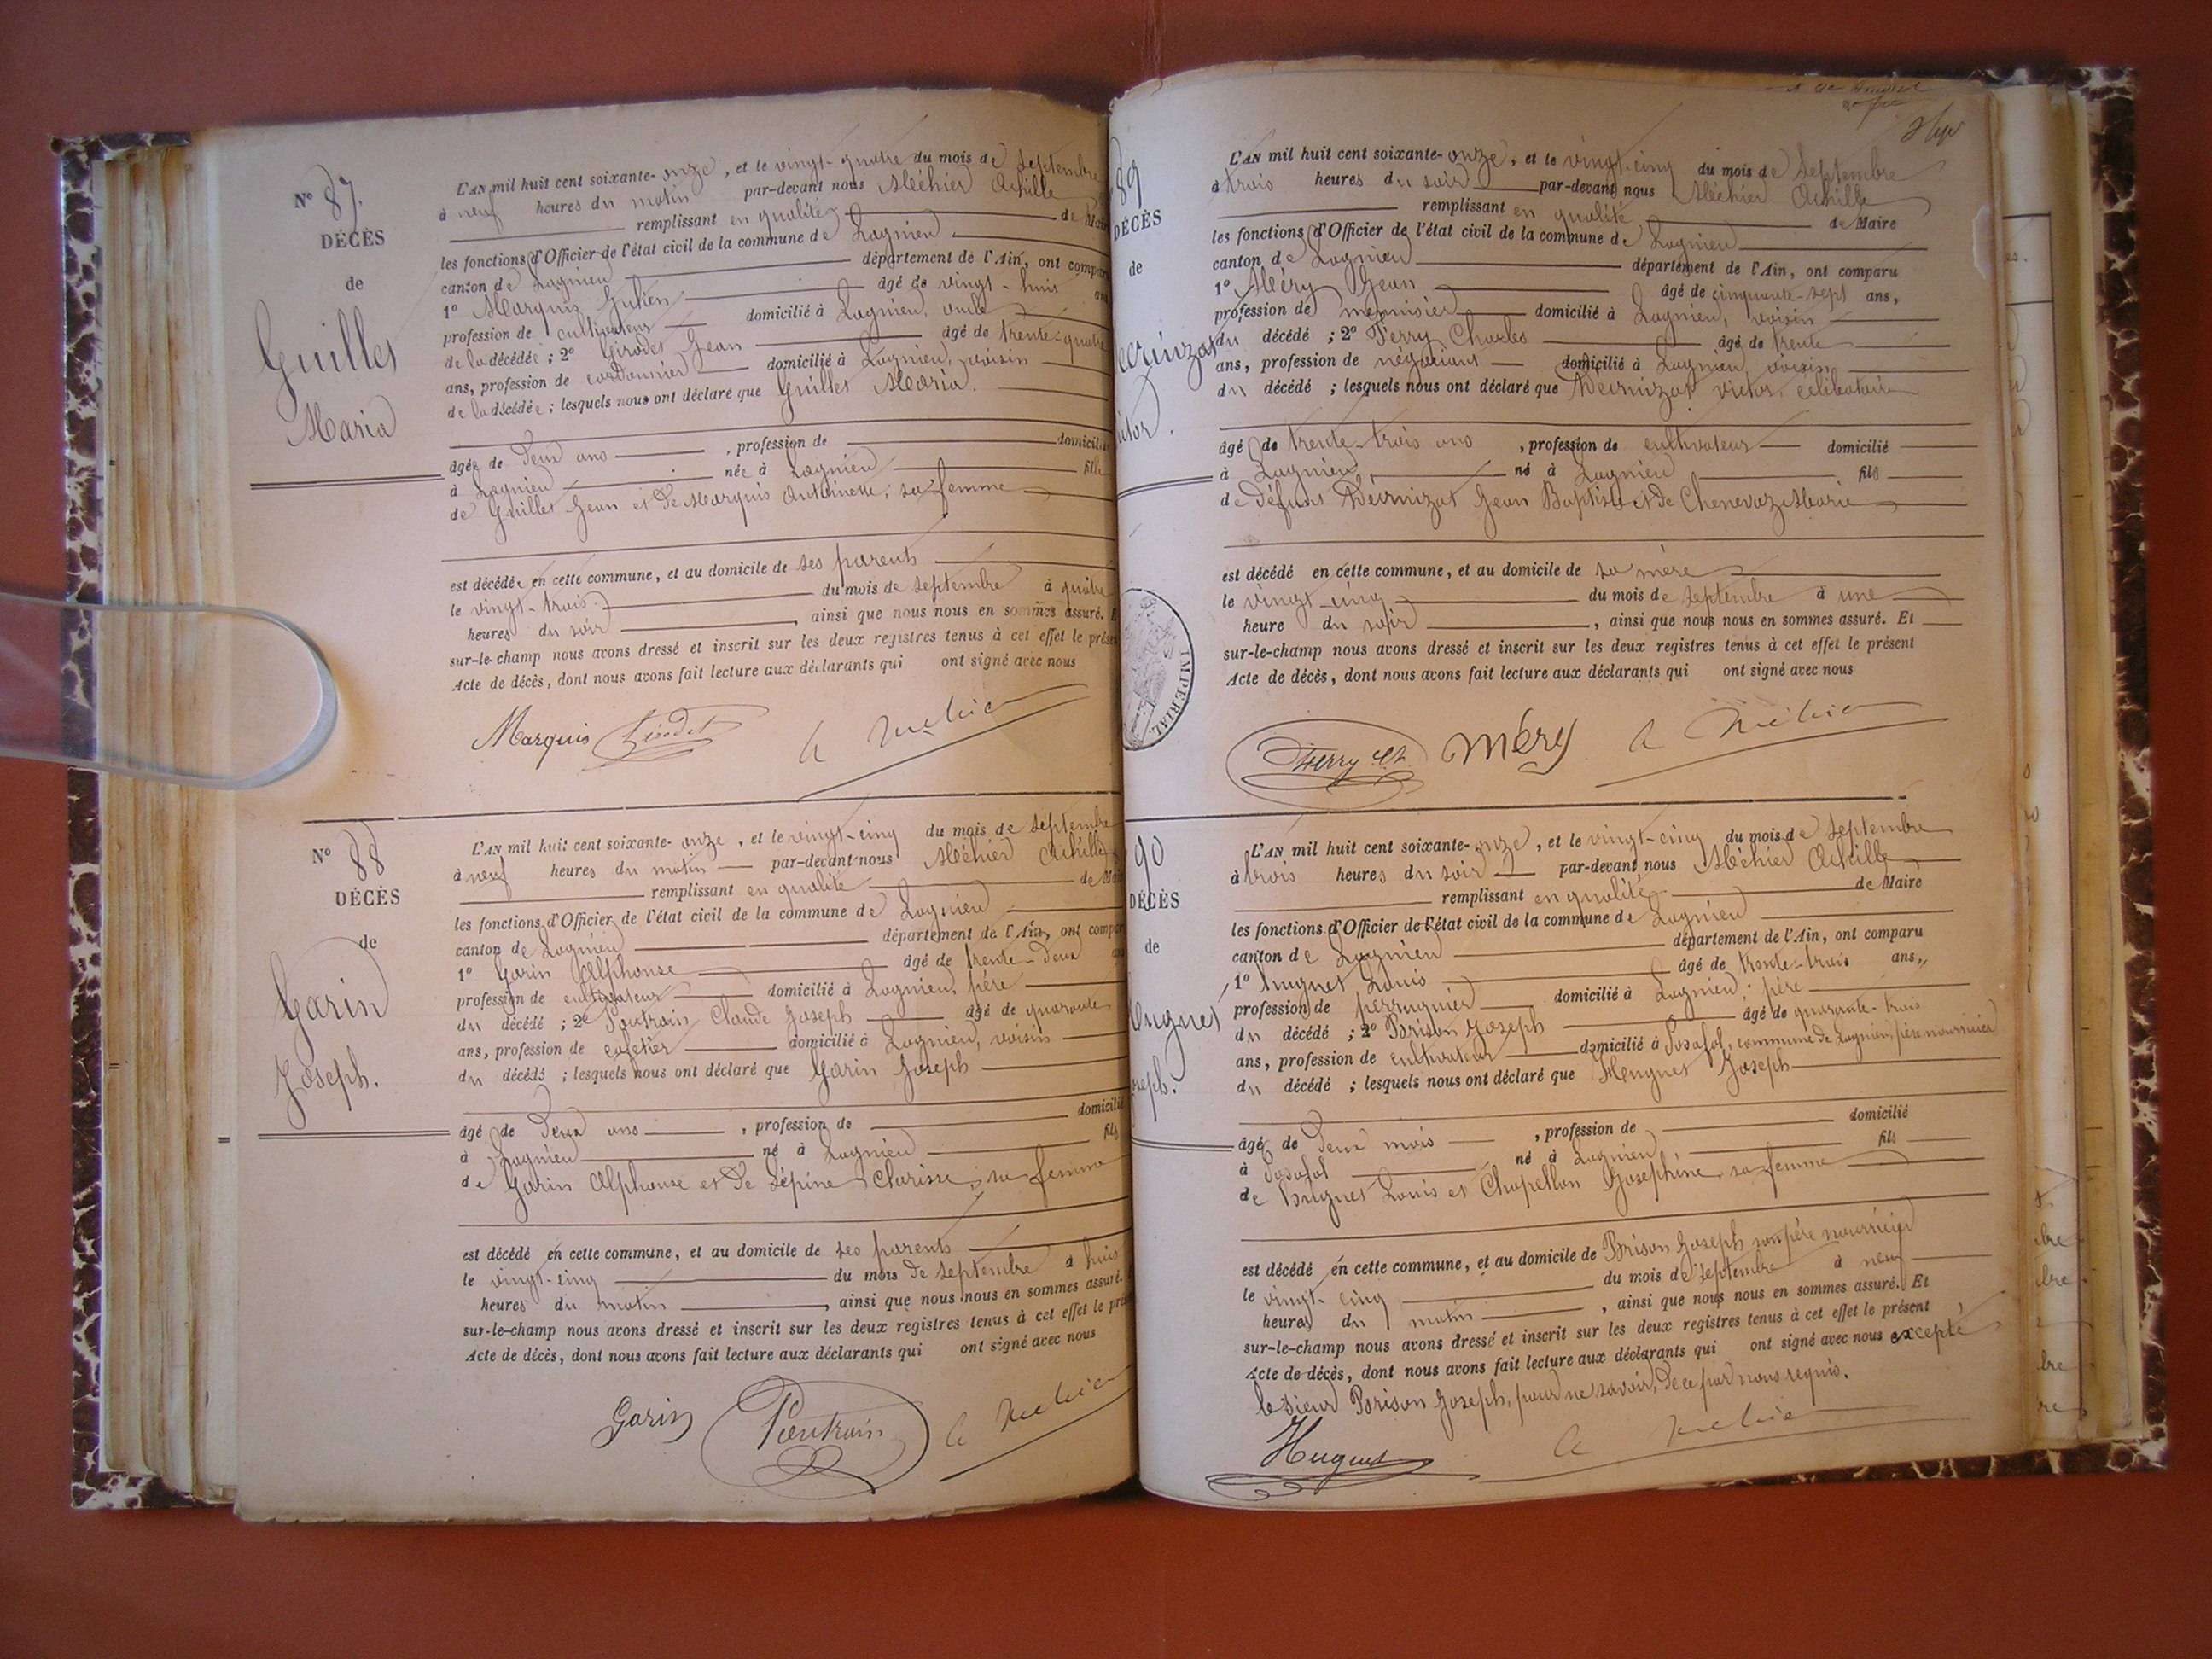 N° 87.
DÉCÈS
de
Guillet
Maria
L'AN mil huit cent soixante-onze, et le vingt-quatre du mois de Septembre
à neuf heures du matin par-devant nous Méhier Achille
remplissant en qualité de Maire
les fonctions d'Officier de l'état civil de la commune de Lagnieu
canton de Lagnieu département de l'Ain, ont comparu
1° Marquis Julien âgé de vingt-huit ans
profession de cultivateur domicilié à Lagnieu, oncle
de la décédée ; 2° Girodet Jean âgé de trente-quatre
ans, profession de cordonnier domicilié à Lagnieu, voisin
de la décédée ; lesquels nous ont déclaré que Guillet Maria.
âgée de deux ans , profession de domicilié
à Lagnieu née à Lagnieu fille
de Guillet Jean et de Marquis Antoinette, sa femme
est décédée en cette commune, et au domicile de ses parents
le vingt-trois du mois de septembre à quatre
heures du soir , ainsi que nous nous en sommes assuré. E
sur-le-champ nous avons dressé et inscrit sur les deux registres tenus à cet effet le présen
Acte de décès, dont nous avons fait lecture aux déclarants qui ont signé avec nous
Marquis Girodet A Méhier
N° 88
DÉCÈS
de
Garin
Joseph.
L'AN mil huit cent soixante-onze, et le vingt-cinq du mois de Septembre
à neuf heures du matin par-devant nous Méhier Achille
remplissant en qualité de Mai
les fonctions d'Officier de l'état civil de la commune de Lagnieu
canton de Lagnieu département de l'Ain, ont compar
1° Garin Alphonse âgé de trente-deux ans
profession de cultivateur domicilié à Lagnieu, père
du décédé ; 2° Poutrain Claude Joseph âgé de quarante
ans, profession de cafetier domicilié à Lagnieu, voisin
du décédé ; lesquels nous ont déclaré que Garin Joseph
âgé de deux ans , profession de domicilié
à Lagnieu né à Lagnieu fils
de Garin Alphonse et de Lépine Clarisse, sa femme
est décédé en cette commune, et au domicile de ses parents
le vingt-cinq du mois de septembre à huit
heures du matin , ainsi que nous nous en sommes assuré.
sur-le-champ nous avons dressé et inscrit sur les deux registres tenus à cet effet le pré
Acte de décès, dont nous avons fait lecture aux déclarants qui ont signé avec nous
Garin Poutrain A Méhier
89
DÉCÈS
de
L'AN mil huit cent soixante-onze, et le vingt-cinq du mois de Septembre
à trois heures du soir par-devant nous Méhier Achille
remplissant en qualité de Maire
les fonctions d'Officier de l'état civil de la commune de Lagnieu
canton de Lagnieu département de l'Ain, ont comparu
1° Méry Jean âgé de cinquante-sept ans,
profession de menuisier domicilié à Lagnieu, voisin
du décédé ; 2° Ferry Charles âgé de trente
ans, profession de négociant domicilié à Lagnieu, voisin
du décédé ; lesquels nous ont déclaré que Victor, célibataire
âgé de trente-trois ans , profession de cultivateur domicilié
à Lagnieu, né à Lagnieu fils
de défunt Jean Baptiste et de Chenavaz Marie
est décédé en cette commune, et au domicile de sa mère
le vingt-cinq du mois de septembre à une
heure du soir , ainsi que nous nous en sommes assuré. Et
sur-le-champ nous avons dressé et inscrit sur les deux registres tenus à cet effet le présent
Acte de décès, dont nous avons fait lecture aux déclarants qui ont signé avec nous
IMPERIAL
Ferry Ch. Méry A Méhier
90
DÉCÈS
de
Huguet
oseph.
L'AN mil huit cent soixante-onze, et le vingt-cinq du mois de Septembre
à trois heures du soir par-devant nous Méhier Achille
remplissant en qualité de Maire
les fonctions d'Officier de l'état civil de la commune de Lagnieu
canton de Lagnieu département de l'Ain, ont comparu
1° huguet Louis âgé de trente-trois ans,
profession de perruquier domicilié à Lagnieu, père
du décédé ; 2° Brison Joseph âgé de quarante-trois
ans, profession de cultivateur domicilié à Posafol, commune de Lagnieu, père nourricier
du décédé ; lesquels nous ont déclaré que Huguet Joseph
âgé de deux mois , profession de domicilié
à Posafol né à Lagnieu fils
de huguet Louis et Chapellon Joséphine, sa femme
est décédé en cette commune, et au domicile de Brison Joseph son père nourricier
le vingt-cinq du mois de septembre à neuf
heures du matin , ainsi que nous nous en sommes assuré. Et
sur-le-champ nous avons dressé et inscrit sur les deux registres tenus à cet effet le présent
Acte de décès, dont nous avons fait lecture aux déclarants qui ont signé avec nous excepté
le sieur Brison Joseph, pour ne savoir, de ce par nous requis.
Huguet A Méhier